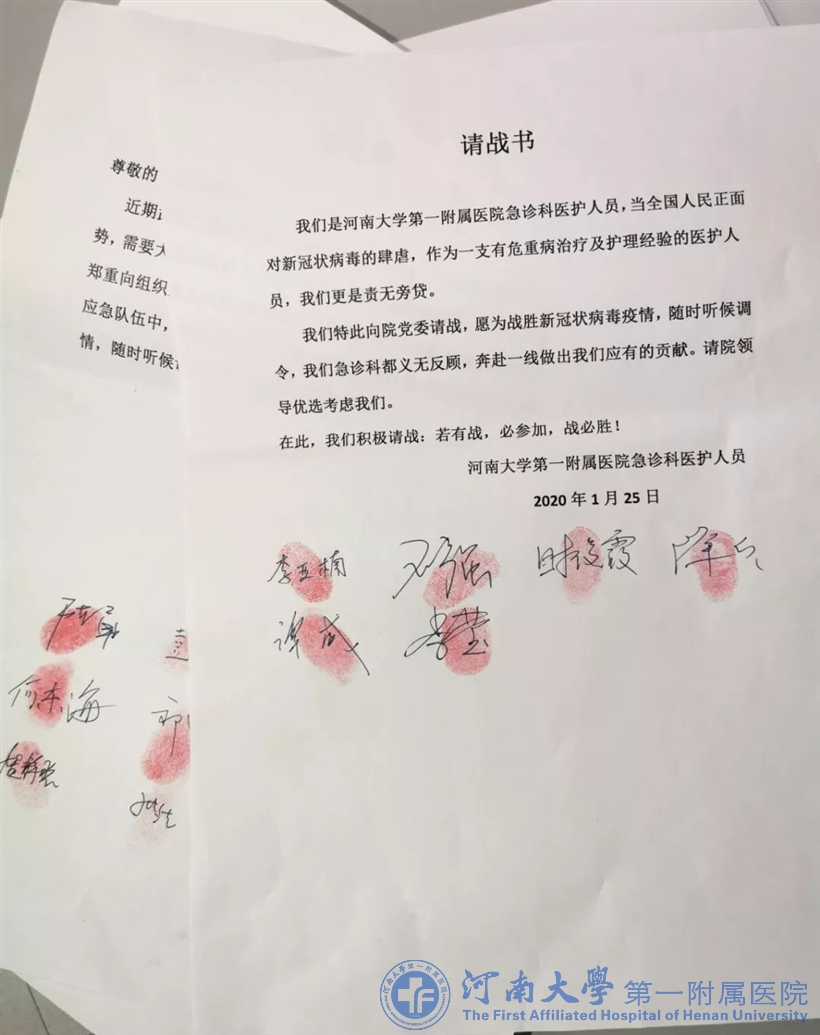 请战书
我们是河南大学第一附属医院急诊科医护人员，当全国人民正面
对新冠状病毒的肆虐，作为一支有危重病治疗及护理经验的医护人
员，我们更是责无旁贷。
我们特此向院党委请战，愿为战胜新冠状病毒疫情，随时听候调
令，我们急诊科都义无反顾，奔赴一线做出我们应有的贡献。请院领
导优选考虑我们。
在此，我们积极请战：若有战，必参加，战必胜！
河南大学第一附属医院急诊科医护人员
2020 年 1 月 25 日
李亚楠
谭威 李莹
尊敬的
近期
势，需要大
郑重向组织
应急队伍中，
情，随时听候
河南大學 第一附属医院
The First Affiliated Hospital of Henan University